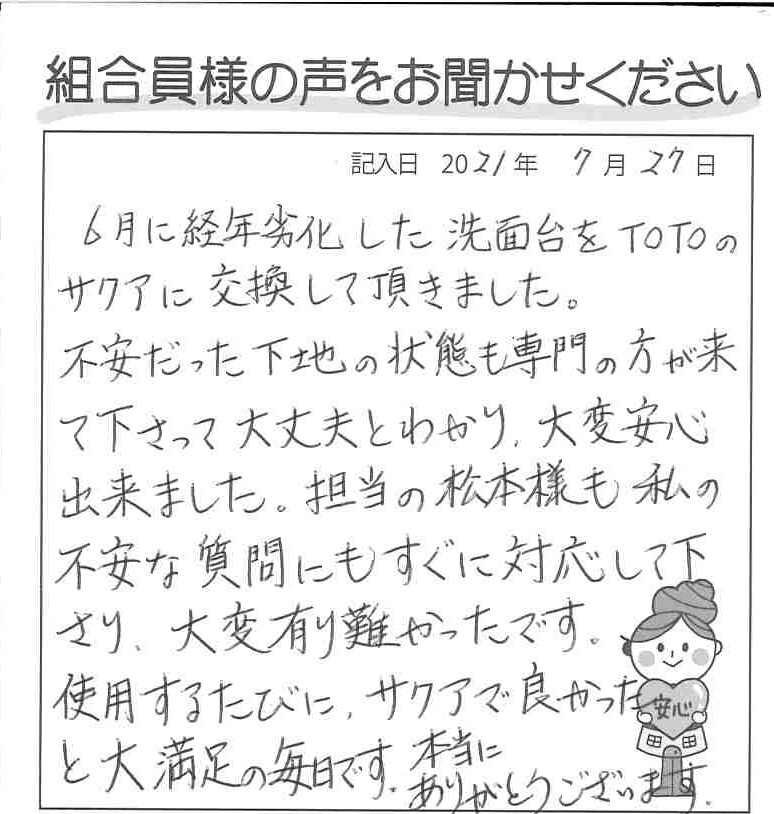 組合員様の声をお聞かせください
記入日 2021年 7月27日
6月に経年劣化した洗面台をTOTOの
サクアに交換して頂きました。
不安だった下地の状態も専門の方が来
て下さって大丈夫とわかり、大変安心
出来ました。担当の松本様も私の
不安な質問にもすぐに対応して下
さり、大変有り難かったです。
使用するたびに、サクアで良かった
安心
と大満足の毎日です。本当に
ありがとうございます。